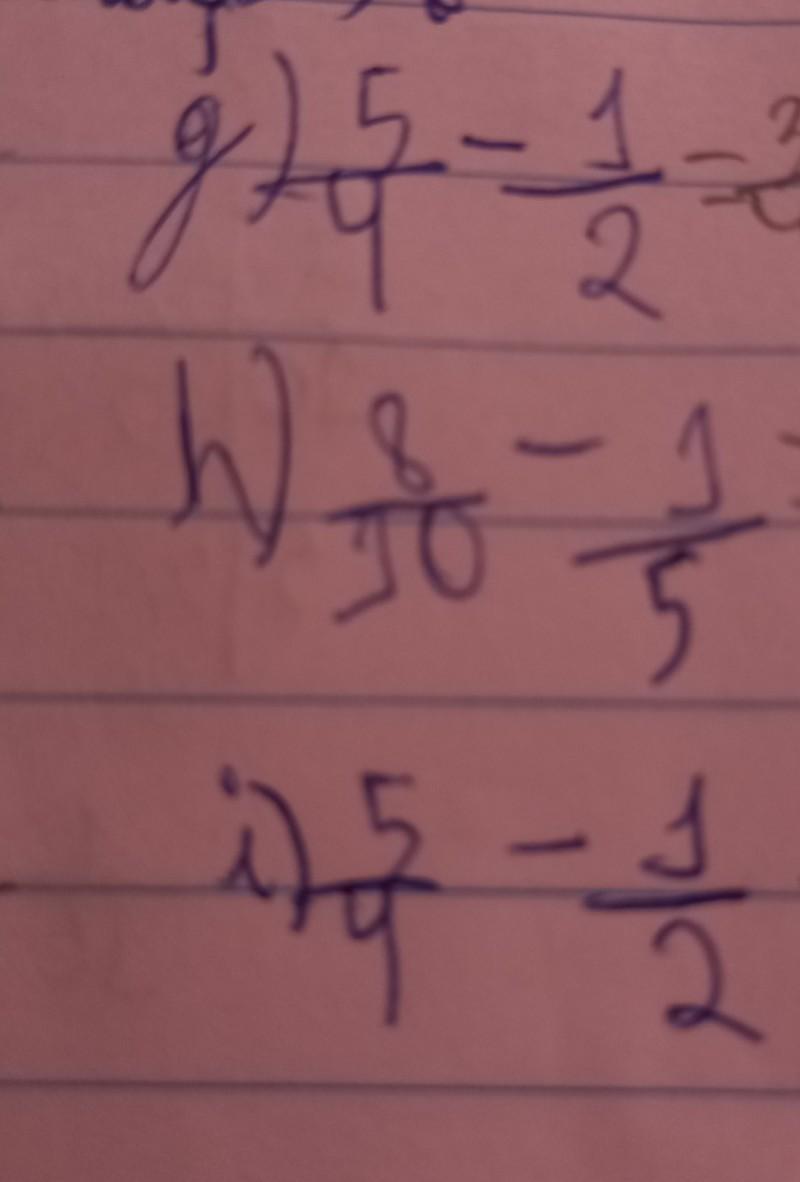 g) 5/4 - 1/2 =
h) 8/10 - 1/5 =
i) 5/4 - 1/2